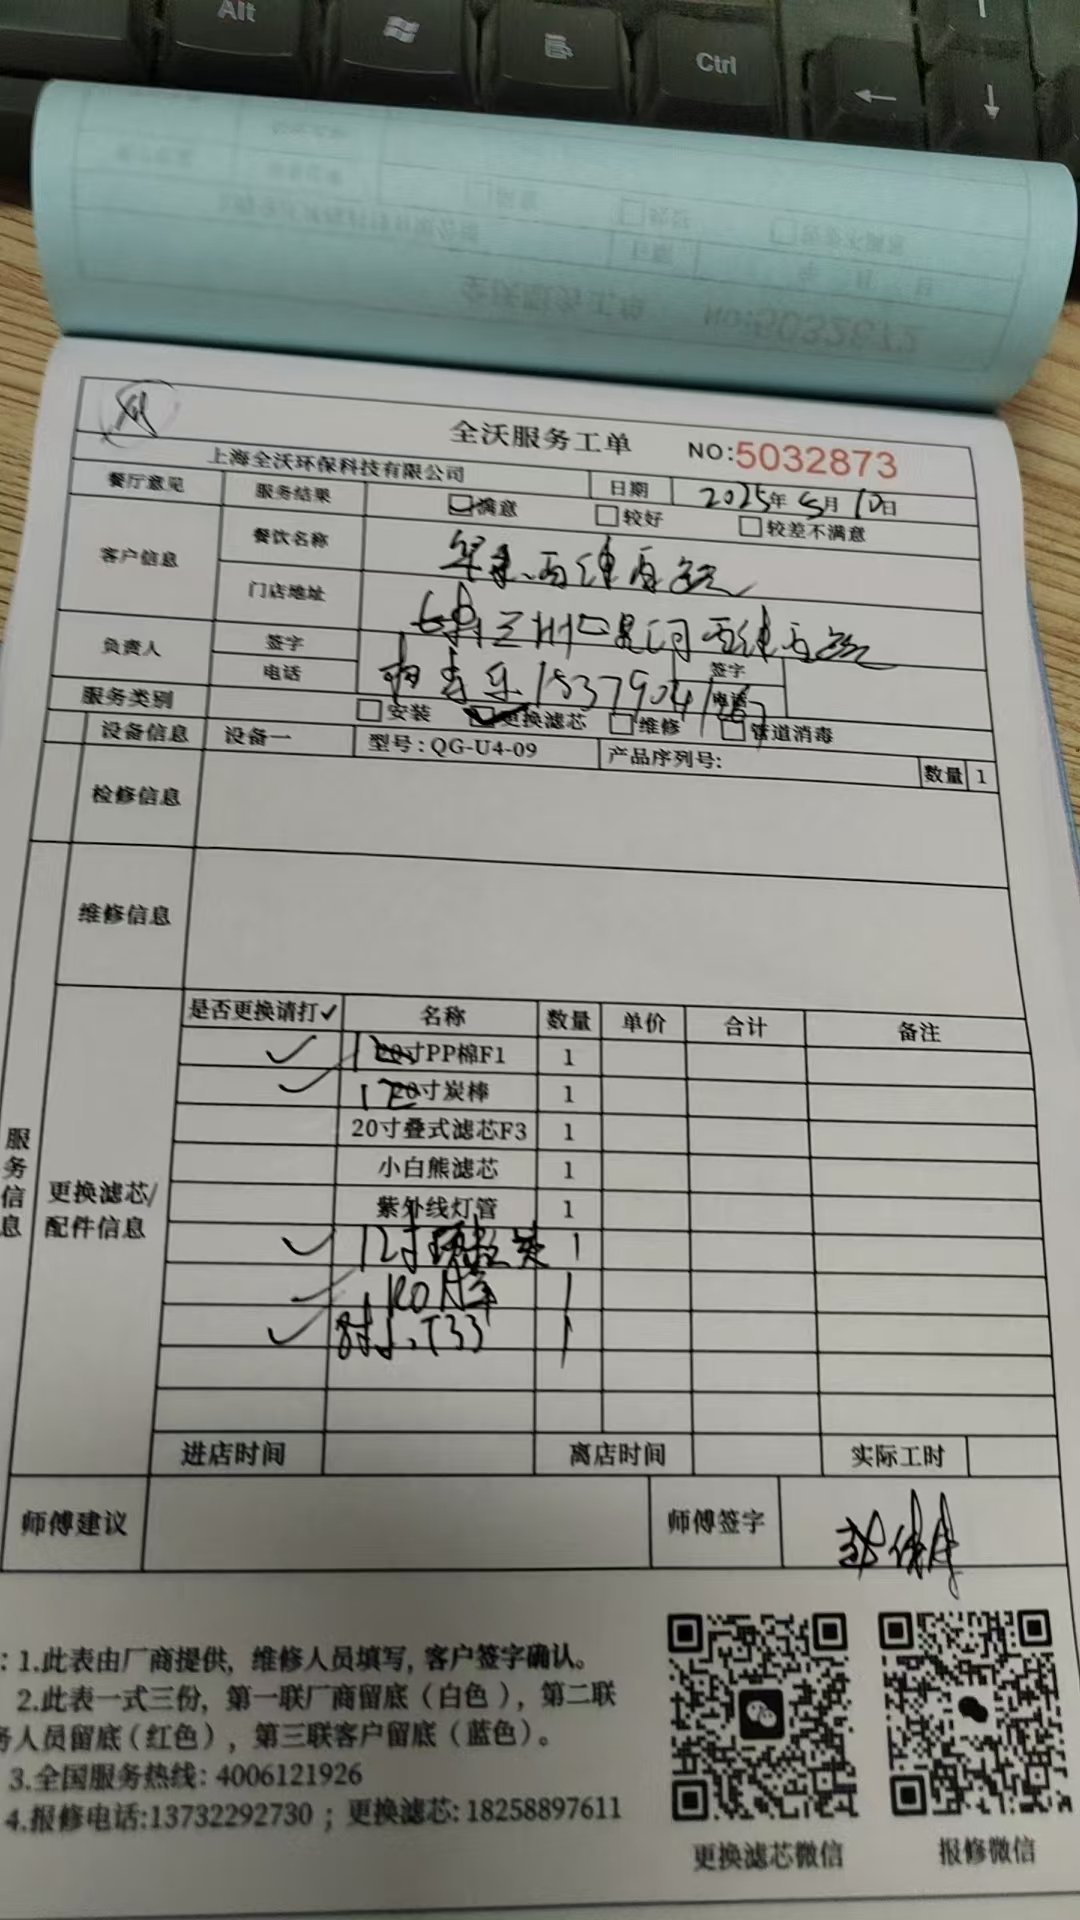 Alt
Ctrl
全沃服务工单 NO:5032873
上海全沃环保科技有限公司 日期 2025年5月10日
餐厅意见 服务结果 满意 较好 较差不满意
客户信息 餐饮名称
门店地址
负责人 签字 签字
电话 电话
服务类别 安装 更换滤芯 维修 管道消毒
设备信息 设备一 型号:QG-U4-09 产品序列号: 数量 1
检修信息
维修信息
服务信息
更换滤芯/配件信息
是否更换请打✓ 名称 数量 单价 合计 备注
✓ 20寸PP棉F1 1
✓ 20寸炭棒 1
20寸叠式滤芯F3 1
小白熊滤芯 1
紫外线灯管 1
✓ 12寸 1
✓ RO 1
✓ T33 1
进店时间 离店时间 实际工时
师傅建议 师傅签字
: 1.此表由厂商提供, 维修人员填写, 客户签字确认。
2.此表一式三份, 第一联厂商留底(白色), 第二联
务人员留底(红色), 第三联客户留底(蓝色)。
3.全国服务热线: 4006121926
4.报修电话:13732292730 ; 更换滤芯: 18258897611
更换滤芯微信 报修微信